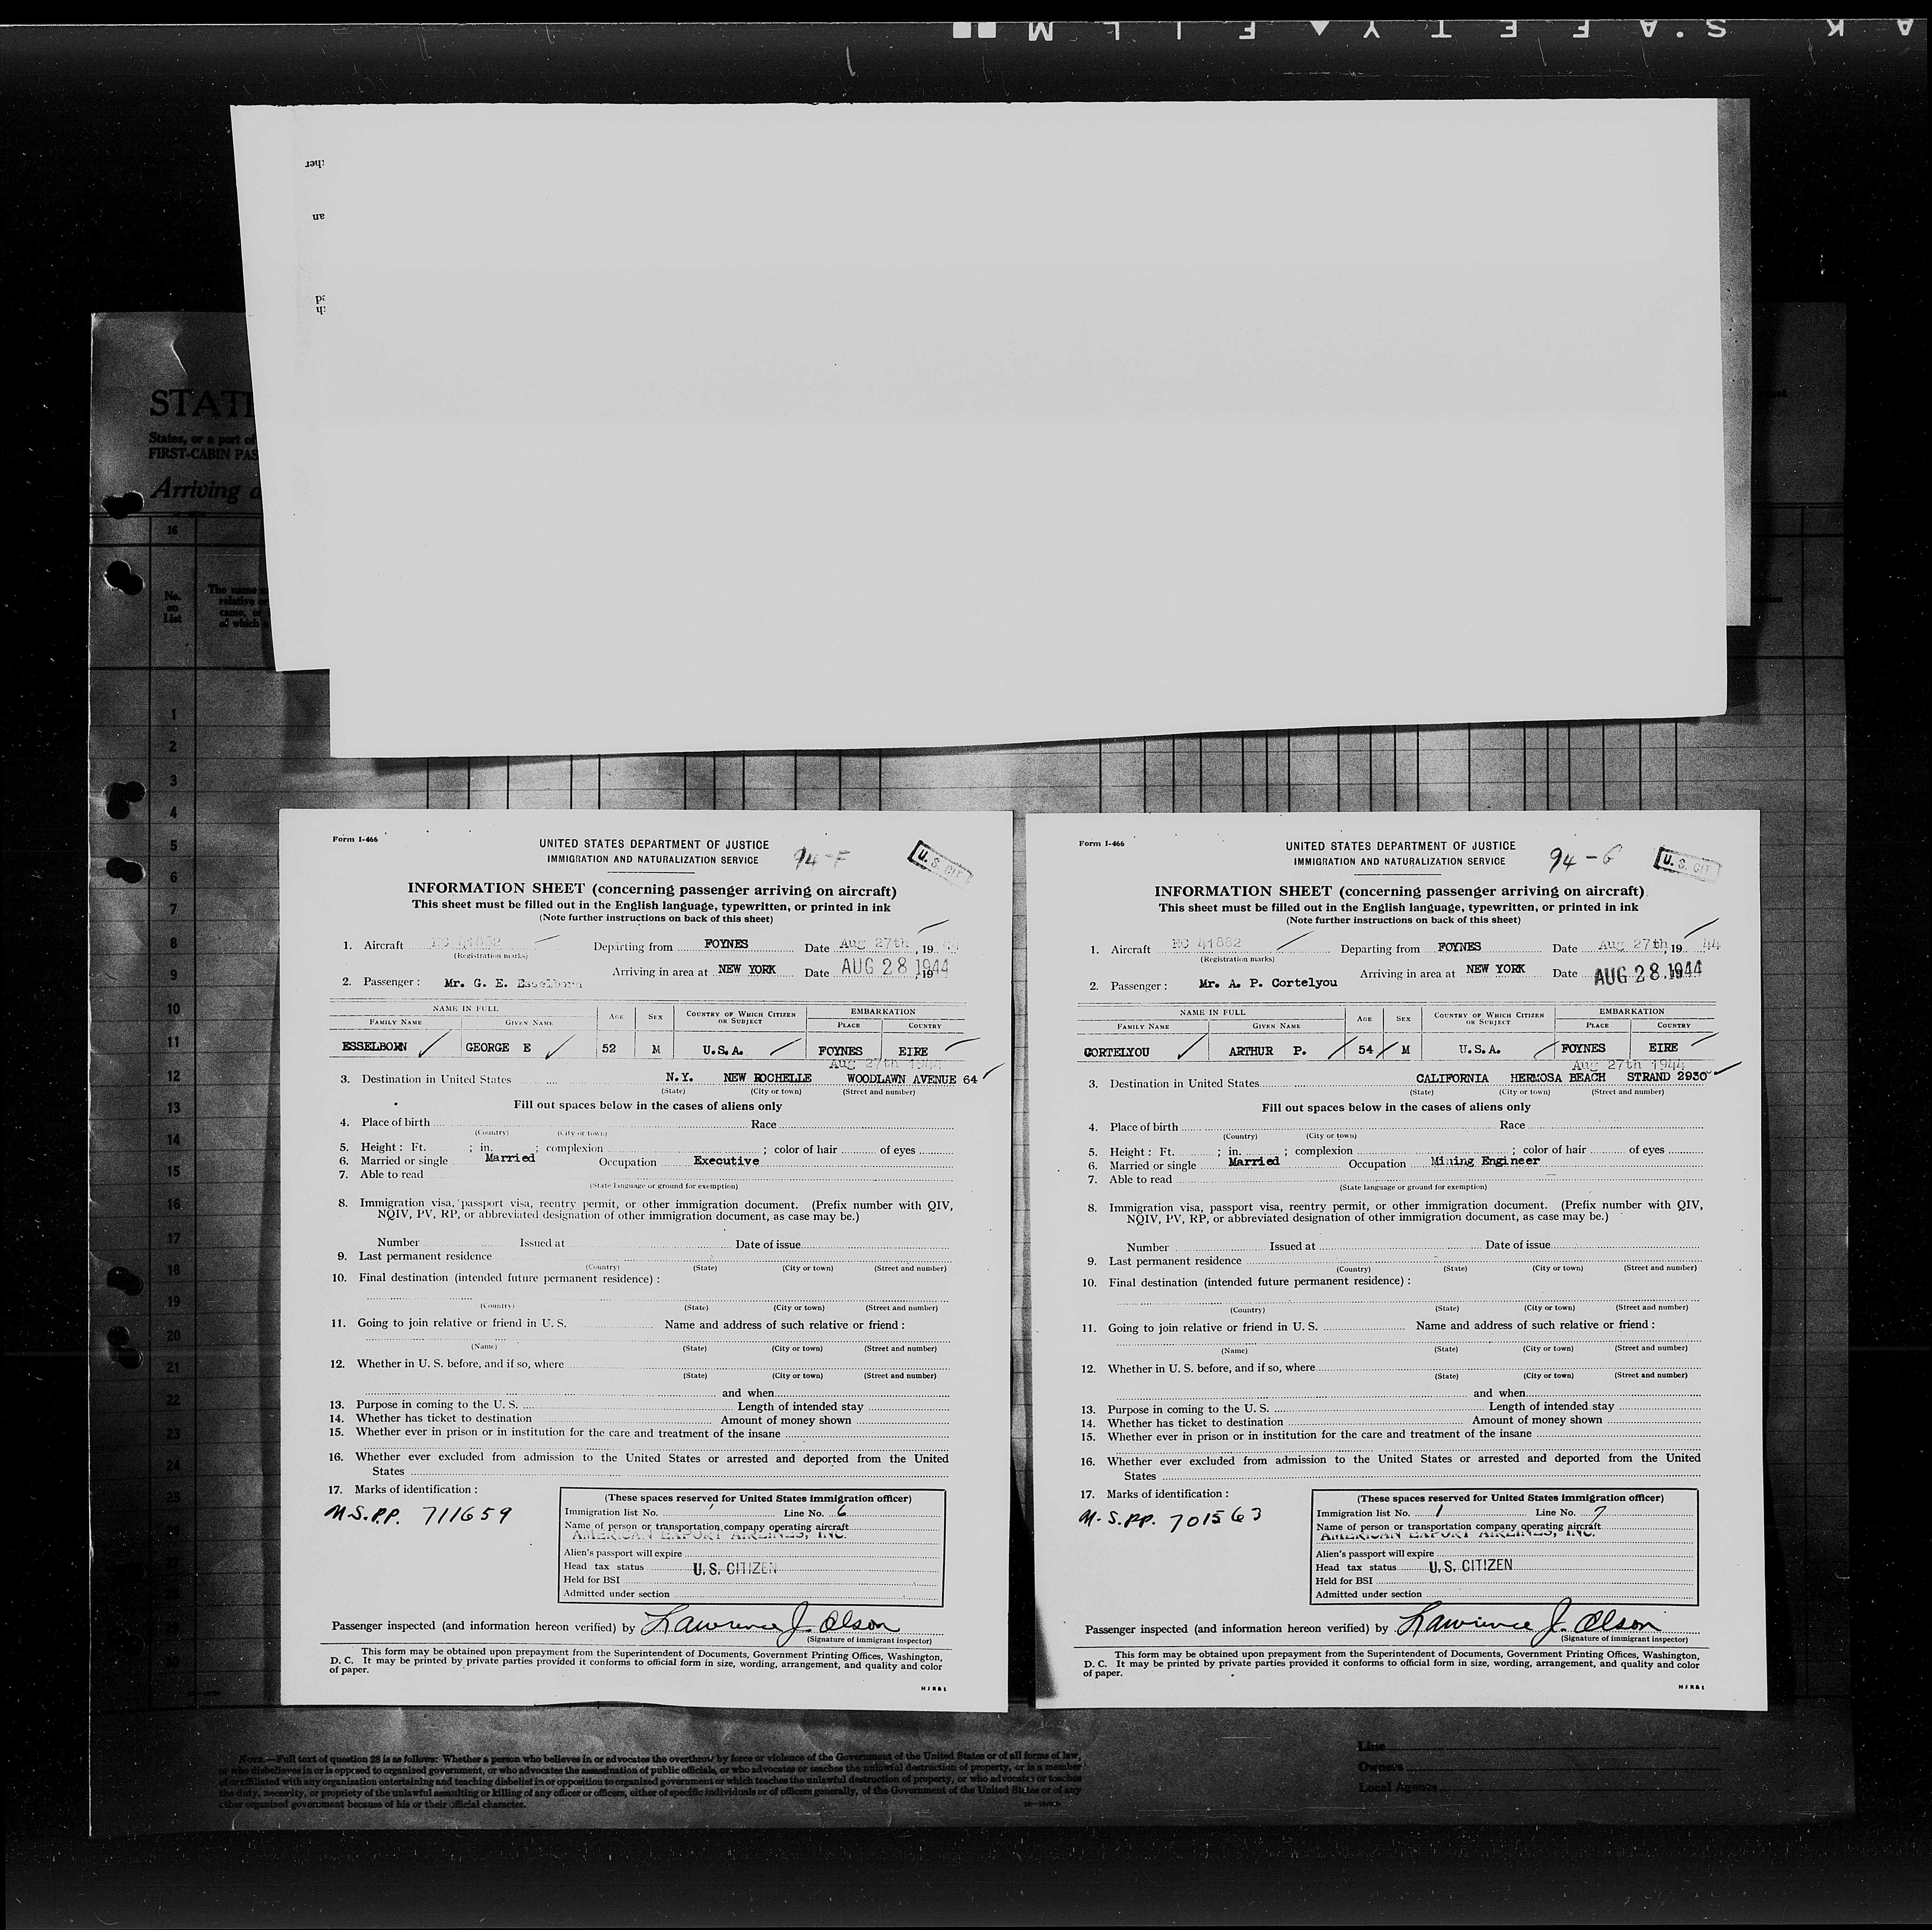 SAFETY▲FILM
STAT
States, or a port of
FIRST-CABIN PAS
Arriving
16
No.
on
List
The name
relative or
came, or
of which
1
2
3
4
5
6
7
8
9
10
11
12
13
14
15
16
17
18
19
20
21
22
23
24
25
Form I-466
UNITED STATES DEPARTMENT OF JUSTICE
IMMIGRATION AND NATURALIZATION SERVICE
94-F
U. S. CIT
INFORMATION SHEET (concerning passenger arriving on aircraft)
This sheet must be filled out in the English language, typewritten, or printed in ink
(Note further instructions on back of this sheet)
1. Aircraft NC 41882 Departing from FOYNES Date Aug 27th, 19 44
(Registration marks)
Arriving in area at NEW YORK Date AUG 28 1944
2. Passenger: Mr. G. E. Esselborn
NAME IN FULL AGE SEX COUNTRY OF WHICH CITIZEN OR SUBJECT EMBARKATION
FAMILY NAME GIVEN NAME PLACE COUNTRY
ESSELBORN GEORGE E 52 M U.S.A. FOYNES EIRE
Aug 27th 1944
3. Destination in United States N.Y. NEW ROCHELLE WOODLAWN AVENUE 64
(State) (City or town) (Street and number)
Fill out spaces below in the cases of aliens only
4. Place of birth Race
(Country) (City or town)
5. Height: Ft. ; in. ; complexion ; color of hair of eyes
6. Married or single Married Occupation Executive
7. Able to read
(State language or ground for exemption)
8. Immigration visa, passport visa, reentry permit, or other immigration document. (Prefix number with QIV,
NQIV, PV, RP, or abbreviated designation of other immigration document, as case may be.)
Number Issued at Date of issue
9. Last permanent residence
(Country) (State) (City or town) (Street and number)
10. Final destination (intended future permanent residence):
(Country) (State) (City or town) (Street and number)
11. Going to join relative or friend in U. S. Name and address of such relative or friend:
(Name) (State) (City or town) (Street and number)
12. Whether in U. S. before, and if so, where
(State) (City or town) (Street and number)
and when
13. Purpose in coming to the U. S. Length of intended stay
14. Whether has ticket to destination Amount of money shown
15. Whether ever in prison or in institution for the care and treatment of the insane
16. Whether ever excluded from admission to the United States or arrested and deported from the United
States
17. Marks of identification:
M.S.PP. 711659
(These spaces reserved for United States immigration officer)
Immigration list No. 1 Line No. 6
Name of person or transportation company operating aircraft
AMERICAN EXPORT AIRLINES, INC.
Alien's passport will expire
Head tax status U. S. CITIZEN
Held for BSI
Admitted under section
Passenger inspected (and information hereon verified) by Lawrence J. Olson
(Signature of immigrant inspector)
This form may be obtained upon prepayment from the Superintendent of Documents, Government Printing Offices, Washington,
D. C. It may be printed by private parties provided it conforms to official form in size, wording, arrangement, and quality and color
of paper.
Form I-466
UNITED STATES DEPARTMENT OF JUSTICE
IMMIGRATION AND NATURALIZATION SERVICE
94-G
U. S. CIT
INFORMATION SHEET (concerning passenger arriving on aircraft)
This sheet must be filled out in the English language, typewritten, or printed in ink
(Note further instructions on back of this sheet)
1. Aircraft NC 41882 Departing from FOYNES Date Aug 27th, 19 44
(Registration marks)
Arriving in area at NEW YORK Date AUG 28 1944
2. Passenger: Mr. A. P. Cortelyou
NAME IN FULL AGE SEX COUNTRY OF WHICH CITIZEN OR SUBJECT EMBARKATION
FAMILY NAME GIVEN NAME PLACE COUNTRY
CORTELYOU ARTHUR P. 54 M U.S.A. FOYNES EIRE
Aug 27th 1944
3. Destination in United States CALIFORNIA HERMOSA BEACH STRAND 2930
(State) (City or town) (Street and number)
Fill out spaces below in the cases of aliens only
4. Place of birth Race
(Country) (City or town)
5. Height: Ft. ; in. ; complexion ; color of hair of eyes
6. Married or single Married Occupation Mining Engineer
7. Able to read
(State language or ground for exemption)
8. Immigration visa, passport visa, reentry permit, or other immigration document. (Prefix number with QIV,
NQIV, PV, RP, or abbreviated designation of other immigration document, as case may be.)
Number Issued at Date of issue
9. Last permanent residence
(Country) (State) (City or town) (Street and number)
10. Final destination (intended future permanent residence):
(Country) (State) (City or town) (Street and number)
11. Going to join relative or friend in U. S. Name and address of such relative or friend:
(Name) (State) (City or town) (Street and number)
12. Whether in U. S. before, and if so, where
(State) (City or town) (Street and number)
and when
13. Purpose in coming to the U. S. Length of intended stay
14. Whether has ticket to destination Amount of money shown
15. Whether ever in prison or in institution for the care and treatment of the insane
16. Whether ever excluded from admission to the United States or arrested and deported from the United
States
17. Marks of identification:
M.S.PP. 701563
(These spaces reserved for United States immigration officer)
Immigration list No. 1 Line No. 7
Name of person or transportation company operating aircraft
AMERICAN EXPORT AIRLINES, INC.
Alien's passport will expire
Head tax status U. S. CITIZEN
Held for BSI
Admitted under section
Passenger inspected (and information hereon verified) by Lawrence J. Olson
(Signature of immigrant inspector)
This form may be obtained upon prepayment from the Superintendent of Documents, Government Printing Offices, Washington,
D. C. It may be printed by private parties provided it conforms to official form in size, wording, arrangement, and quality and color
of paper.
NOTE.—Full text of question 28 is as follows: Whether a person who believes in or advocates the overthrow by force or violence of the Government of the United States or of all forms of law,
or who disbelieves in or is opposed to organized government, or who advocates the assassination of public officials, or who advocates or teaches the unlawful destruction of property, or is a member
of or affiliated with any organization entertaining and teaching disbelief in or opposition to organized government or which teaches the unlawful destruction of property, or who advocates or teaches
the duty, necessity, or propriety of the unlawful assaulting or killing of any officer or officers, either of specific individuals or of officers generally, of the Government of the United States or of any
other organized government because of his or their official character.
Line
Owners
Local Agents